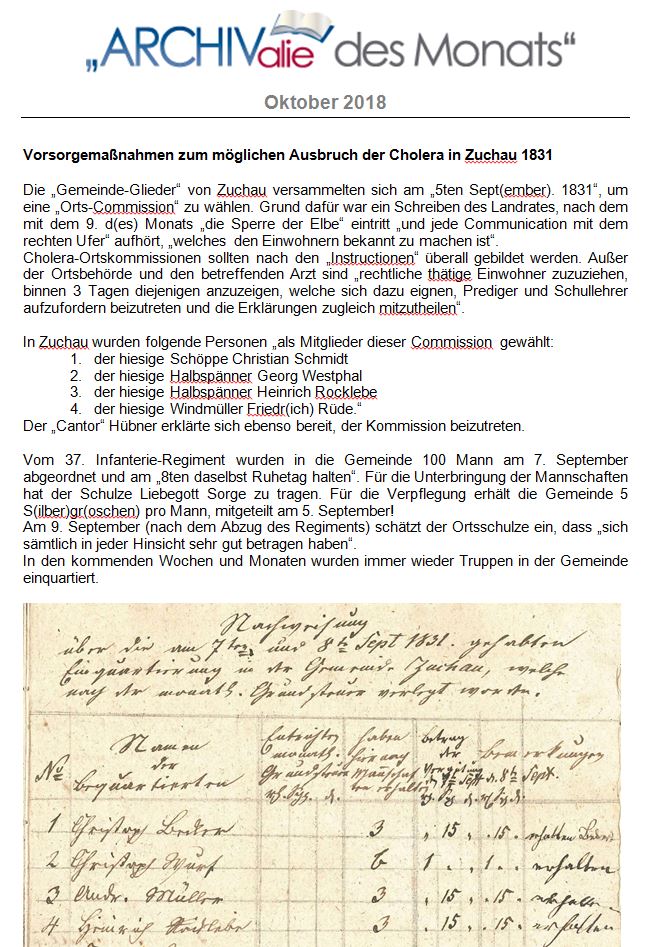 „ARCHIValie des Monats“
Oktober 2018
Vorsorgemaßnahmen zum möglichen Ausbruch der Cholera in Zuchau 1831
Die „Gemeinde-Glieder“ von Zuchau versammelten sich am „5ten Sept(ember). 1831“, um
eine „Orts-Commission“ zu wählen. Grund dafür war ein Schreiben des Landrates, nach dem
mit dem 9. d(es) Monats „die Sperre der Elbe“ eintritt „und jede Communication mit dem
rechten Ufer“ aufhört, „welches den Einwohnern bekannt zu machen ist“.
Cholera-Ortskommissionen sollten nach den „Instructionen“ überall gebildet werden. Außer
der Ortsbehörde und den betreffenden Arzt sind „rechtliche thätige Einwohner zuzuziehen,
binnen 3 Tagen diejenigen anzuzeigen, welche sich dazu eignen, Prediger und Schullehrer
aufzufordern beizutreten und die Erklärungen zugleich mitzutheilen“.
In Zuchau wurden folgende Personen „als Mitglieder dieser Commission gewählt:
1. der hiesige Schöppe Christian Schmidt
2. der hiesige Halbspänner Georg Westphal
3. der hiesige Halbspänner Heinrich Rocklebe
4. der hiesige Windmüller Friedr(ich) Rüde.“
Der „Cantor“ Hübner erklärte sich ebenso bereit, der Kommission beizutreten.
Vom 37. Infanterie-Regiment wurden in die Gemeinde 100 Mann am 7. September
abgeordnet und am „8ten daselbst Ruhetag halten“. Für die Unterbringung der Mannschaften
hat der Schulze Liebegott Sorge zu tragen. Für die Verpflegung erhält die Gemeinde 5
S(ilber)gr(oschen) pro Mann, mitgeteilt am 5. September!
Am 9. September (nach dem Abzug des Regiments) schätzt der Ortsschulze ein, dass „sich
sämtlich in jeder Hinsicht sehr gut betragen haben“.
In den kommenden Wochen und Monaten wurden immer wieder Truppen in der Gemeinde
einquartiert.
Nachweisung
über die am 7ten und 8ten Sept 1831. gehabten
Einquartierung in der Gemeinde Zuchau, welche
nach der monatl. Grundsteuer verlegt worden.
No Namen der Bequartierten
Entrichten monatl. Grundsteuer
haben hiernach Mannschaften erhalten
Betrag der Vergütung den 7ten Sept. d. 8ten Sept.
Bemerkungen
1 Christoph Becker 3 " 15 " " 15 " erhalten
2 Christoph Wurf 6 1 " " 1 " " erhalten
3 Andr. Müller 3 " 15 " " 15 " erhalten
4 Heinrich Rocklebe 3 " 15 " " 15 " erhalten